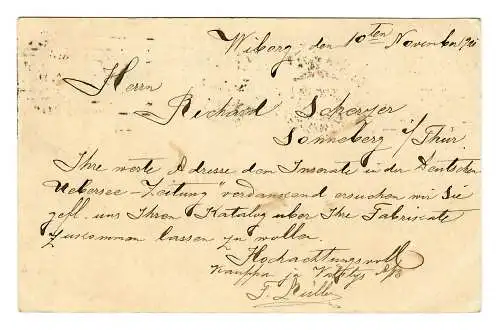 Wiborg, den 10ten November 1901
Herrn
Richard Scherzer
Sonneberg i/Thür.
Ihre werte Adresse dem Inserate in der „Deutschen
Uebersee-Zeitung" verdankend ersuchen wir Sie
gefl. uns Ihren Katalog über Ihre Fabricate
zukommen lassen zu wollen.
Hochachtungsvoll
Kauppa ja